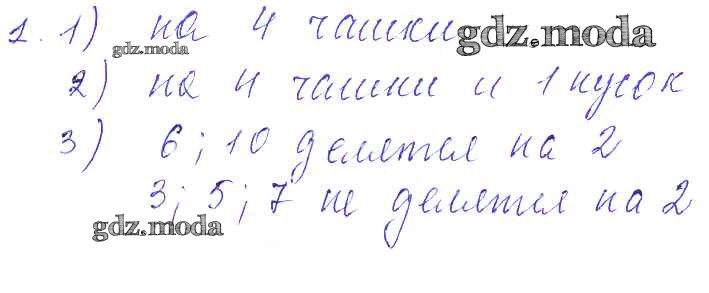 1. 1) на 4 чашки gdz.moda
gdz.moda
2) на 4 чашки и 1 кусок
3) 6; 10 делятся на 2
3; 5; 7 не делятся на 2
gdz.moda